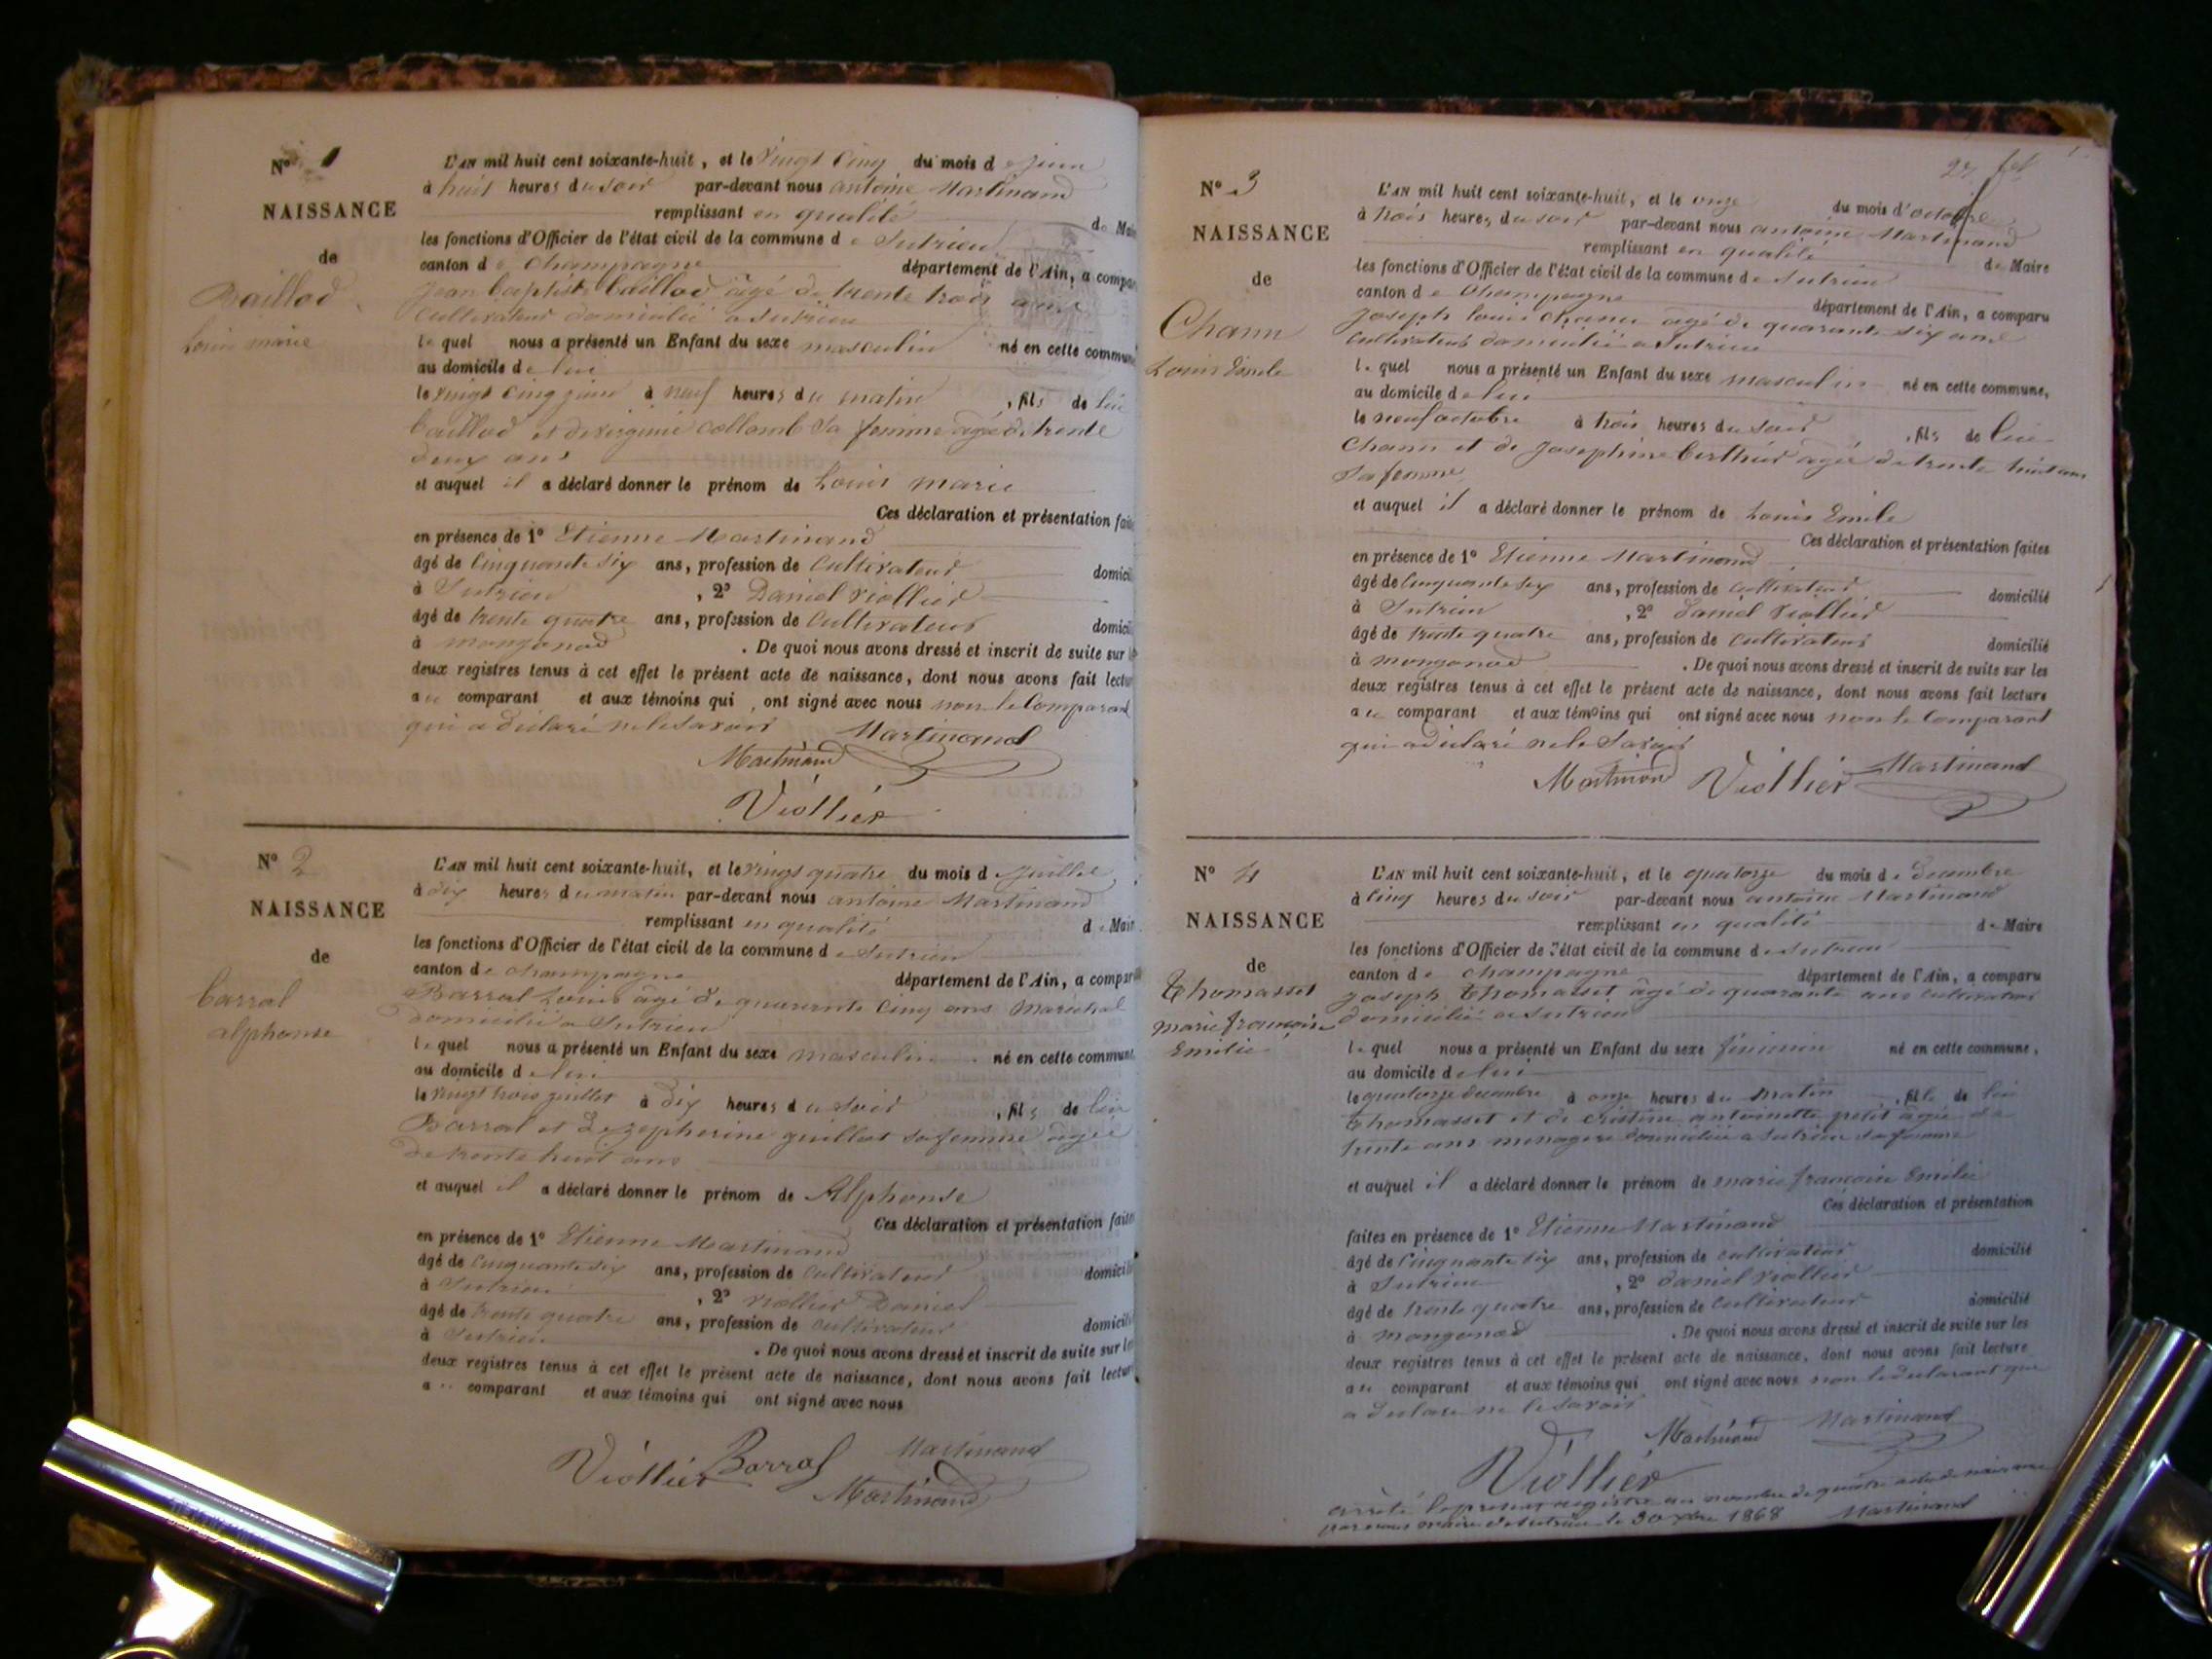 N° 1
NAISSANCE
de
Baillod
Louis marie
L'AN mil huit cent soixante-huit, et le vingt Cinq du mois de juin
à huit heures du soir par-devant nous antoine Martinand
remplissant en qualité de Mai
les fonctions d'Officier de l'état civil de la commune de Sutrieu
canton de Champagne département de l'Ain, a compar
Jean baptiste baillod âgé de trente trois ans
Cultivateur domicilié a Sutrieu
lequel nous a présenté un Enfant du sexe masculin né en cette commune
au domicile de lui
le vingt cinq juin à neuf heures du matin, fils de lui
baillod et de virginie collomb Sa femme âgée de trente
deux ans
et auquel il a déclaré donner le prénom de Louis marie
Ces déclaration et présentation fait
en présence de 1° Etienne Martinand
âgé de Cinquante Six ans, profession de Cultivateur domicil
à Sutrieu, 2° Daniel Viollier
âgé de trente quatre ans, profession de Cultivateur domicil
à mongonod. De quoi nous avons dressé et inscrit de suite sur l
deux registres tenus à cet effet le présent acte de naissance, dont nous avons fait lectur
au comparant et aux témoins qui, ont signé avec nous non le Comparant
qui a déclaré ne le Savoir Martinand
Martinand
Viollier
N° 2
NAISSANCE
de
barral
alphonse
L'AN mil huit cent soixante-huit, et le vingt quatre du mois de juillet
à dix heures du matin par-devant nous antoine Martinand
remplissant en qualité de Mair
les fonctions d'Officier de l'état civil de la commune de Sutrieu
canton de champagne département de l'Ain, a compar
Barral Louis âgé de quarante Cinq ans Maréchal
domicilié a Sutrieu
lequel nous a présenté un Enfant du sexe masculin né en cette commune
au domicile de lui
le vingt trois juillet à dix heures du soir, fils de lui
Barral et de zepherine guillot sa femme âgée
de trente huit ans
et auquel il a déclaré donner le prénom de Alphonse
Ces déclaration et présentation faites
en présence de 1° Etienne Martinand
âgé de Cinquante Six ans, profession de Cultivateur domicili
à Sutrieu, 2° Viollier Daniel
âgé de trente quatre ans, profession de cultivateur domicili
à Sutrieu. De quoi nous avons dressé et inscrit de suite sur les
deux registres tenus à cet effet le présent acte de naissance, dont nous avons fait lectur
au comparant et aux témoins qui ont signé avec nous
Viollier Barral Martinand
Martinand
N° 3
NAISSANCE
de
Chann
Louis Emile
L'AN mil huit cent soixante-huit, et le onze du mois d'octobre
à trois heures du soir par-devant nous antoine Martinand
remplissant en qualité de Maire
les fonctions d'Officier de l'état civil de la commune de Sutrieu
canton de Champagne département de l'Ain, a comparu
Joseph louis chann agé de quarante six ans
cultivateur domicilié a Sutrieu
lequel nous a présenté un Enfant du sexe masculin né en cette commune,
au domicile de lui
le neuf octobre à trois heures du soir, fils de lui
Chann et de Josephine berthier agée de trente huit ans
Sa femme
et auquel il a déclaré donner le prénom de Louis Emile
Ces déclaration et présentation faites
en présence de 1° Etienne Martinand
âgé de Cinquante six ans, profession de cultivateur domicilié
à Sutrieu, 2° Daniel Viollier
âgé de trente quatre ans, profession de Cultivateur domicilié
à mongonod. De quoi nous avons dressé et inscrit de suite sur les
deux registres tenus à cet effet le présent acte de naissance, dont nous avons fait lecture
au comparant et aux témoins qui ont signé avec nous non le Comparant
qui a déclaré ne le Savoir
Martinand Viollier Martinand
N° 4
NAISSANCE
de
Thomasset
marie françoise
Emilie
L'AN mil huit cent soixante-huit, et le quatorze du mois de decembre
à Cinq heures du soir par-devant nous antoine Martinand
remplissant en qualité de Maire
les fonctions d'Officier de l'état civil de la commune de Sutrieu
canton de champagne département de l'Ain, a comparu
joseph Thomasset âgé de quarante ans cultivateur
domicilié a Sutrieu
lequel nous a présenté un Enfant du sexe féminin né en cette commune,
au domicile de lui
le quatorze decembre à onze heures du matin, fille de lui
Thomasset et de cristine antoinette petit âgée de
trente ans menagere domiciliée a Sutrieu sa femme
et auquel il a déclaré donner le prénom de marie françoise Emilie
Ces déclaration et présentation
faites en présence de 1° Etienne Martinand
âgé de Cinquante Six ans, profession de cultivateur domicilié
à Sutrieu, 2° daniel viollier
âgé de trente quatre ans, profession de Cultivateur domicilié
à mongonod. De quoi nous avons dressé et inscrit de suite sur les
deux registres tenus à cet effet le présent acte de naissance, dont nous avons fait lecture
au comparant et aux témoins qui ont signé avec nous non le declarant que
a declare ne le savoir
Martinand Martinand
Viollier
arrêté le present registre au nombre de quatre actes de naissance
par nous maire de Sutrieu le 30 Xbre 1868 Martinand